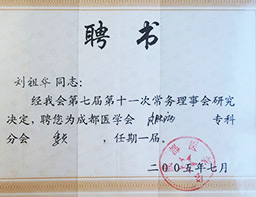 聘书
刘祖华同志:
经我会第七届第十一次常务理事会研究
决定,聘您为成都医学会 皮肤病 专科
分会 委员 ,任期一届。
二00五年七月